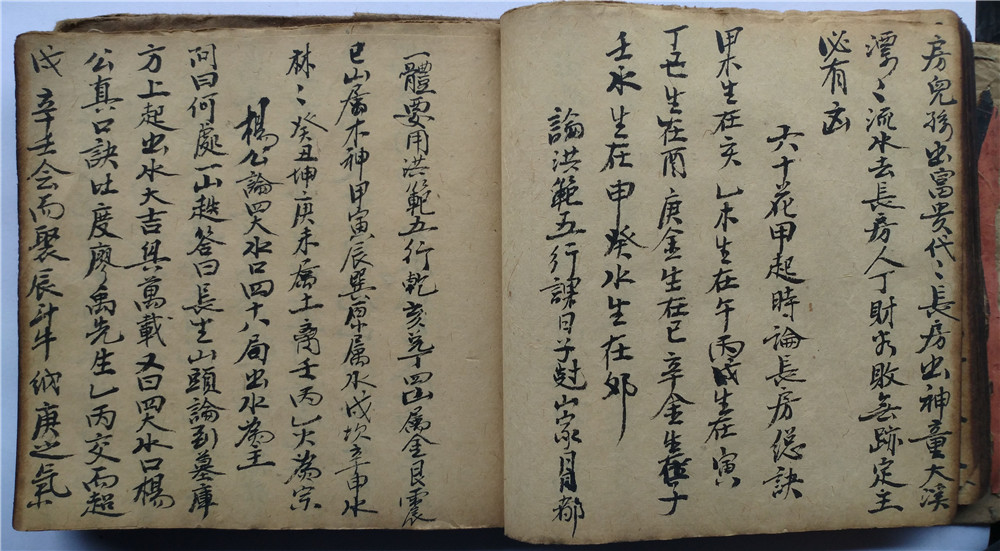 房兒孫出富貴代〻長房出神童大溪
漂〻流水去長房人丁財害敗無跡定主
必有凶
六十花甲起時論長房總訣
甲木生在亥乙木生在午丙戊生在寅
丁己生在酉庚金生在巳辛金生在子
壬水生在申癸水生在卯
論洪範五行課日子尅山家月都
一體要用洪範五行乾亥兌丁四山屬金艮震
巳山屬木神甲寅辰巽原屬水戌坎辛申水
林〻癸丑坤庚未屬土离壬丙乙火為宗
楊公論四大水口四十八局出水為主
問曰何處一山起答曰長生山頭論到墓庫
方上起出水大吉與萬載又曰四大水口楊
公真口訣吐度廖禹先生乙丙交而趨
戌辛壬会而聚辰斗牛納庚之氣